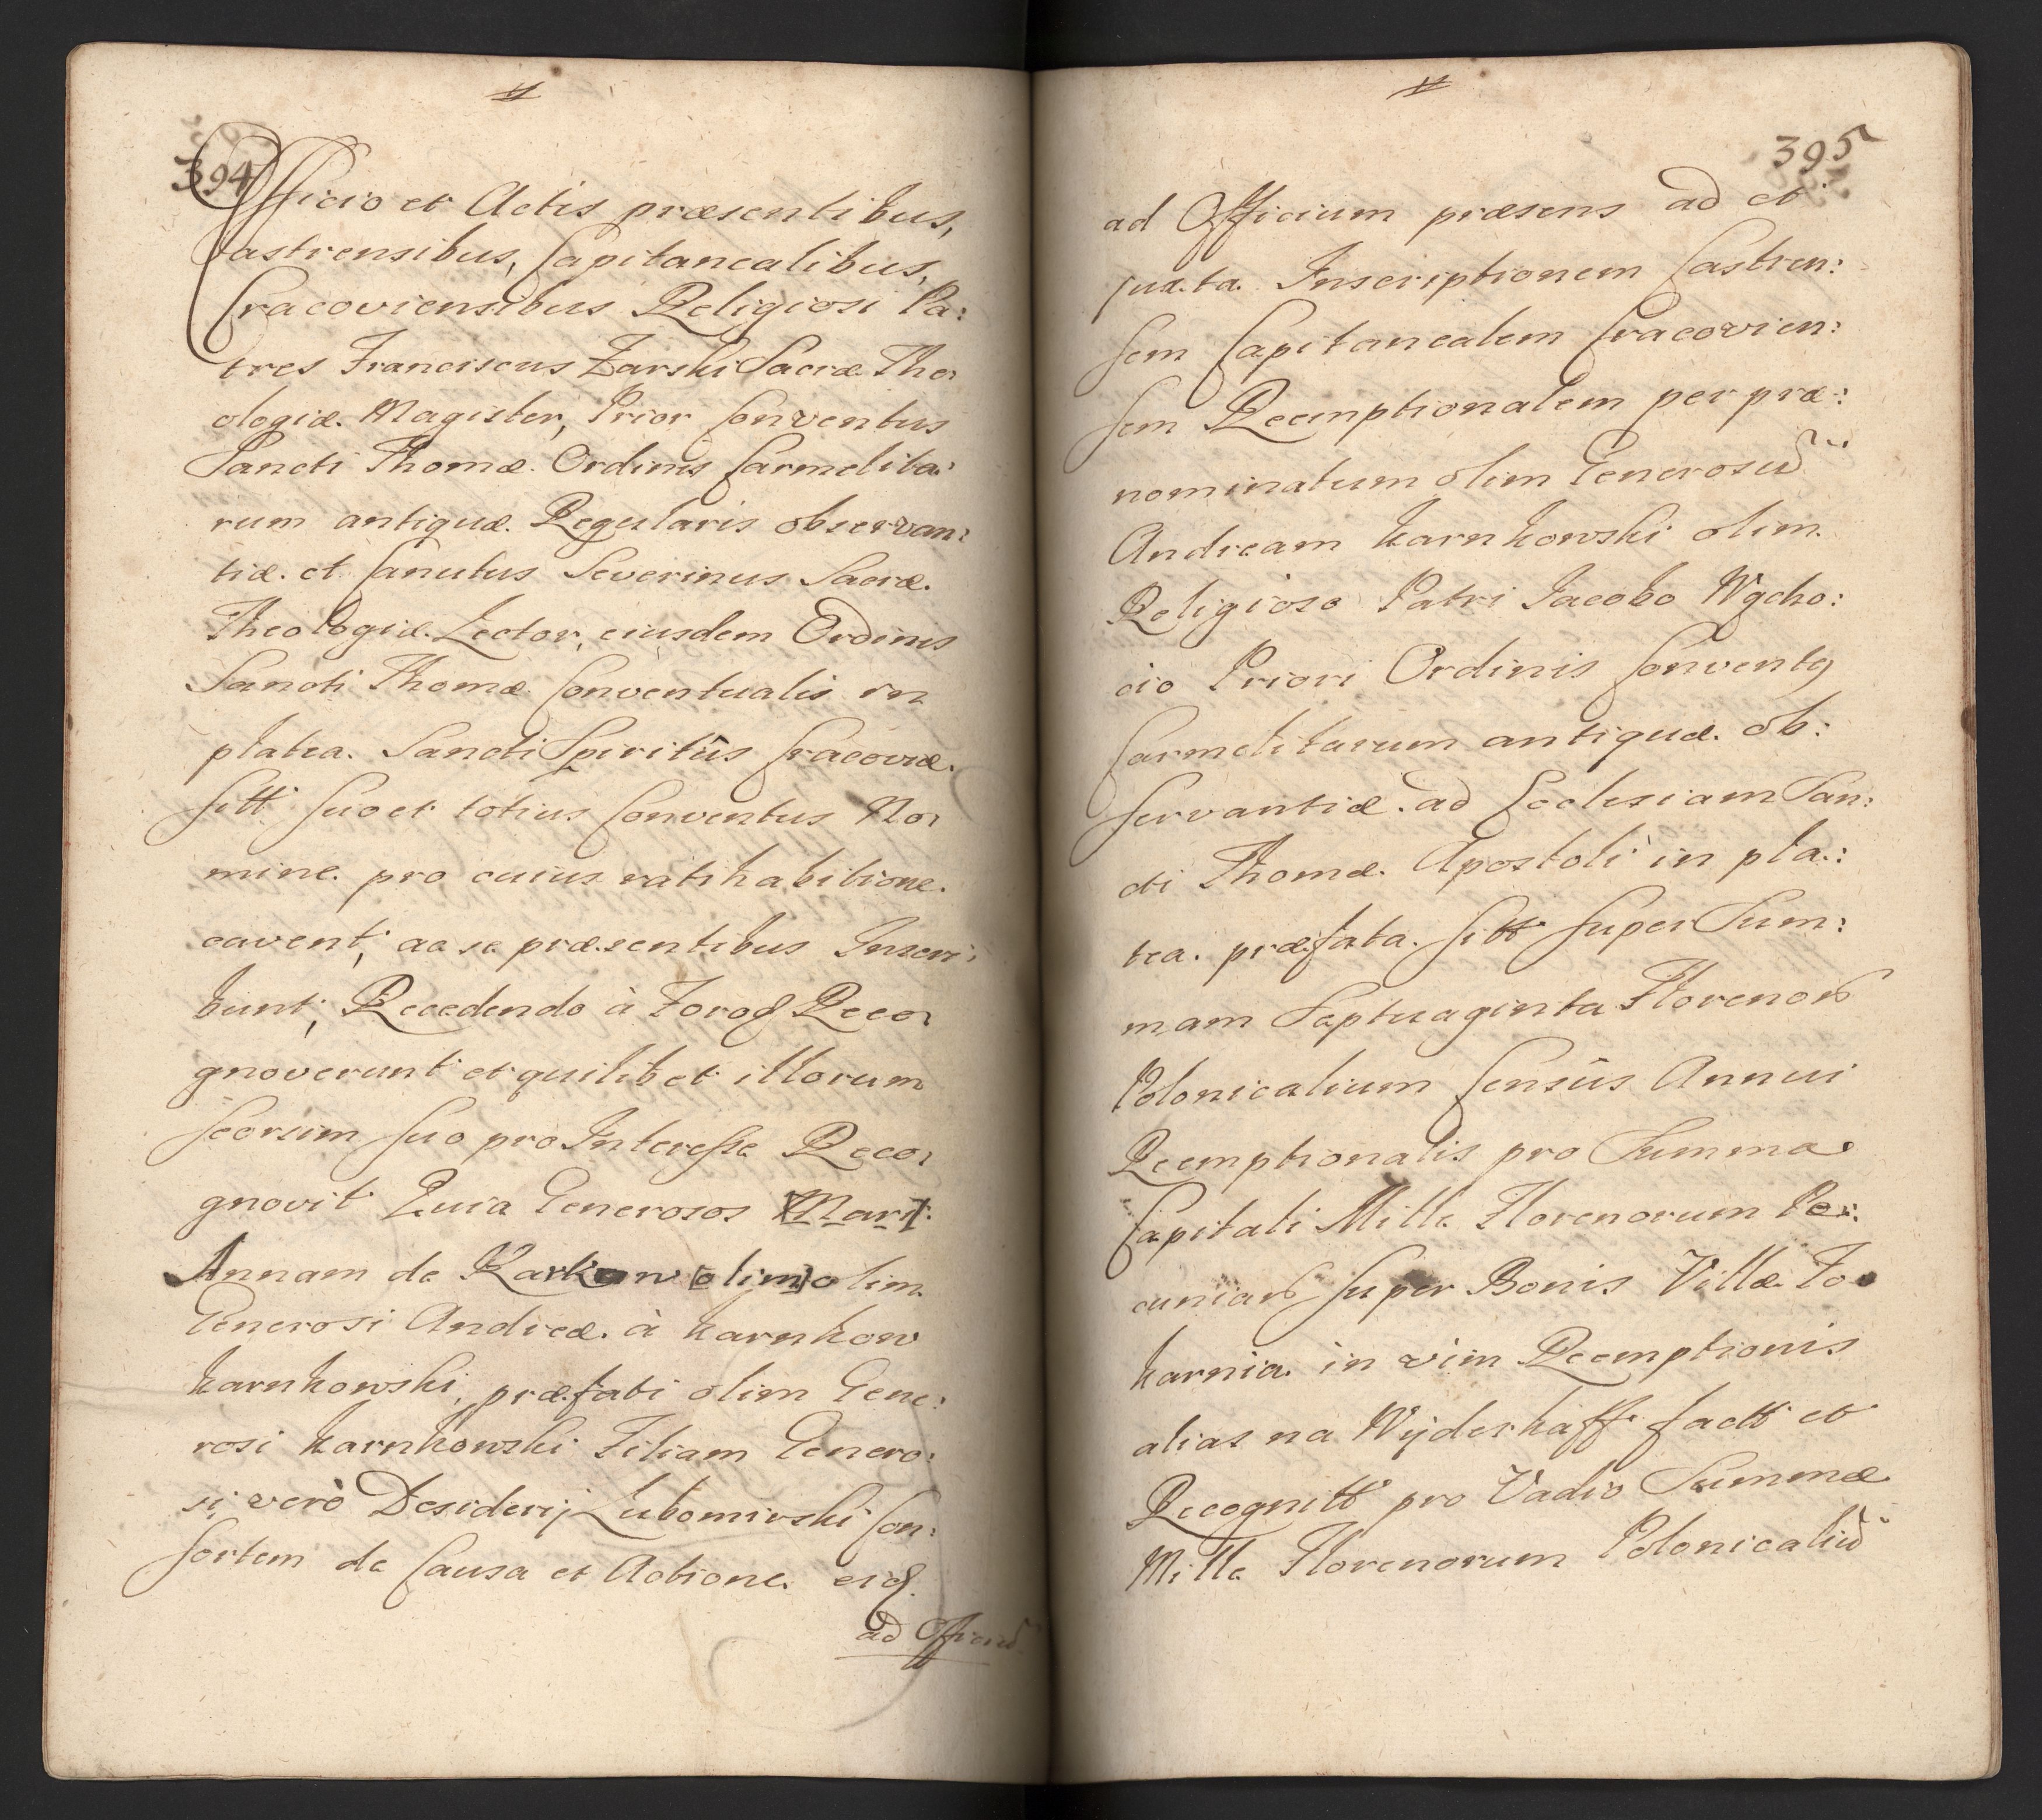 #
394
Officio et Actis præsentibus,
Castrensibus, Capitanealibus,
Cracoviensibus Religiosi Pa:
tres Franciscus Żarski Sacræ The:
ologiæ Magister, Prior Conventus
Sancti Thomæ Ordinis Carmelita:
rum antiquæ Regularis observan:
tiæ et Canutus Severinus Sacræ
Theologiæ Lector, eiusdem Ordinis
Sancti Thomæ Conventualis in
platea Sancti Spiritûs Cracoviæ
sitt suo et totius Conventus No:
mine pro cuius ratihabitione
cavent, ac se præsentibus Inscri:
bunt, Recedendo à Foroq Reco:
gnoverunt et quilibet illorum
seorsum suo pro Interesse Reco:
gnovit Quia Generosos [Mari]
Annam de Karkow [olim] olim
Generosi Andreæ à Karnkow
Karnkowski, præfati olim Gene:
rosi Karnkowski Filiam Genero:
si verò Desiderij Lubomirski Con:
sortem de Causa et Actione eiq
ad Officiu
#
395
ad Officium præsens ad et
juxta Inscriptionem Castren:
sem Capitanealem Cracovien:
sem Reemptionalem per præ:
nominatum olim Generosu
Andream Karnkowski olim
Religioso Patri Jacobo Wycho:
cio Priori Ordinis Conventq
Carmelitarum antiquæ ob:
servantiæ ad Ecclesiam San:
cti Thomæ Apostoli in pla:
tea præfata sitt super Sum:
mam Septuaginta Floreno
Polonicalium Censûs Annui
Reemptionalis pro Summa
Capitali Mille Florenorum Pe:
cunia super Bonis Villæ To
karnia in vim Reemptionis
alias na Wyderkaff factt et
Recognitt pro Vadio Summæ
Mille Florenorum Polonicaliu